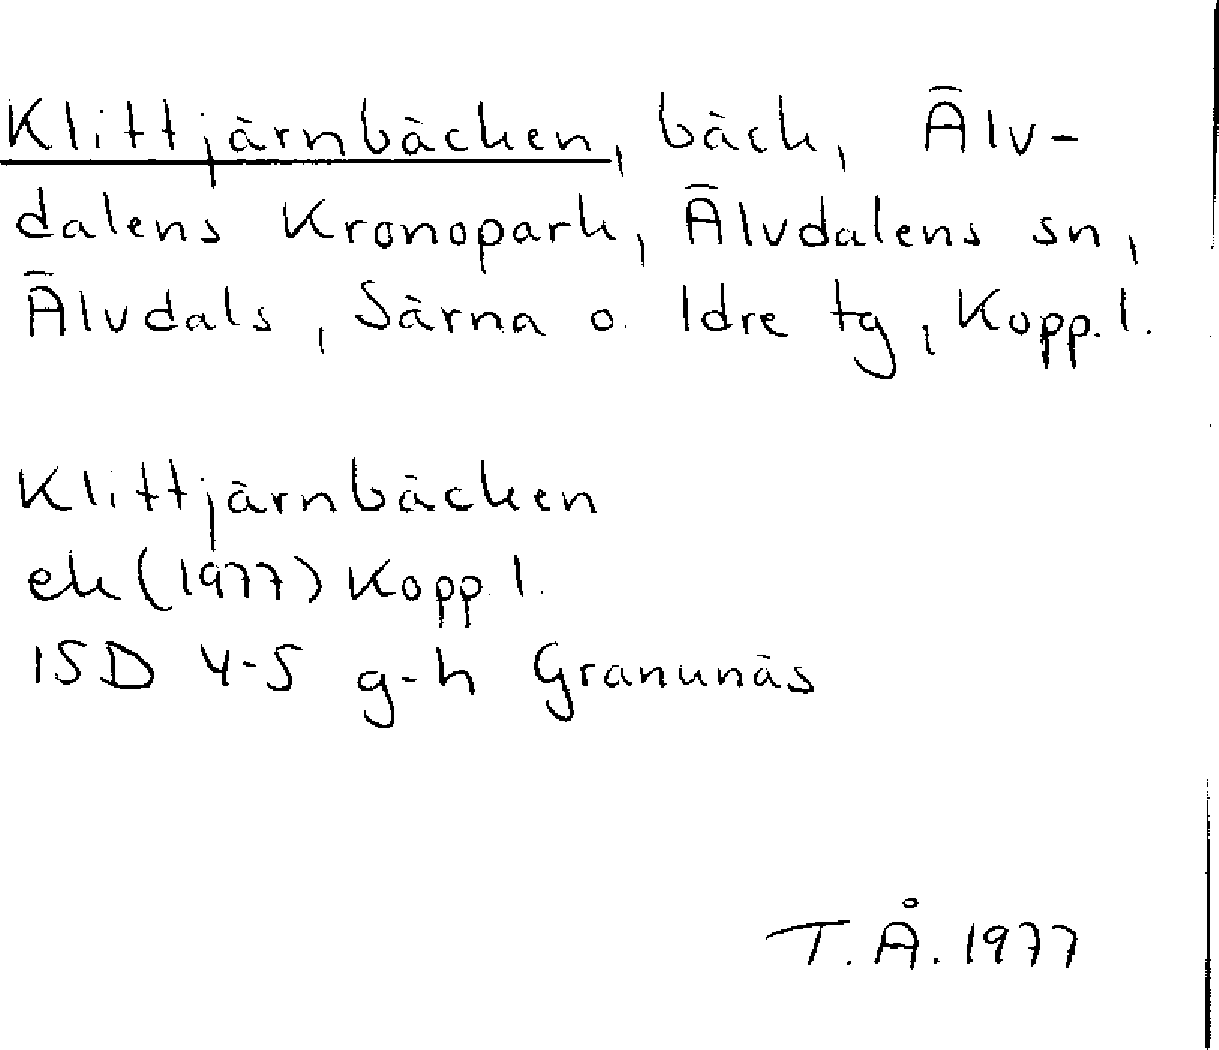 Klittjärnbäcken, bäck, Älv-
dalens Kronopark, Älvdalens sn,
Älvdals, Särna o. Idre tg, Kopp. l.
Klittjärnbäcken
ek (1977) Kopp l.
15D 4-5 g-h Granunäs
T. Å. 1977